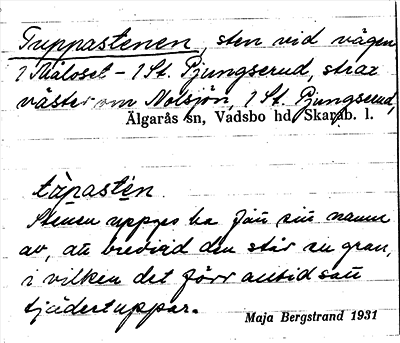 Tuppastenen, sten vid vägen
1 Måloset - 1 St. Ljungserud, strax
väster om Nolsjön, 1 St. Ljungserud,
Älgarås sn, Vadsbo hd, Skarab. l.
tắpastén.
Stenen uppges ha fått sitt namn
av, att bredvid den står en gran,
i vilken det förr alltid satt
tjädertuppar.
Maja Bergstrand 1931